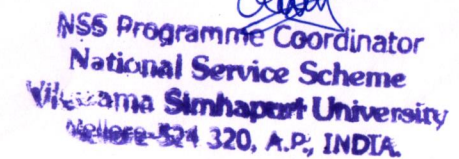 NSS Programme Coordinator
National Service Scheme
Simhapuri University
Nellore-524 320, A.P., INDIA.